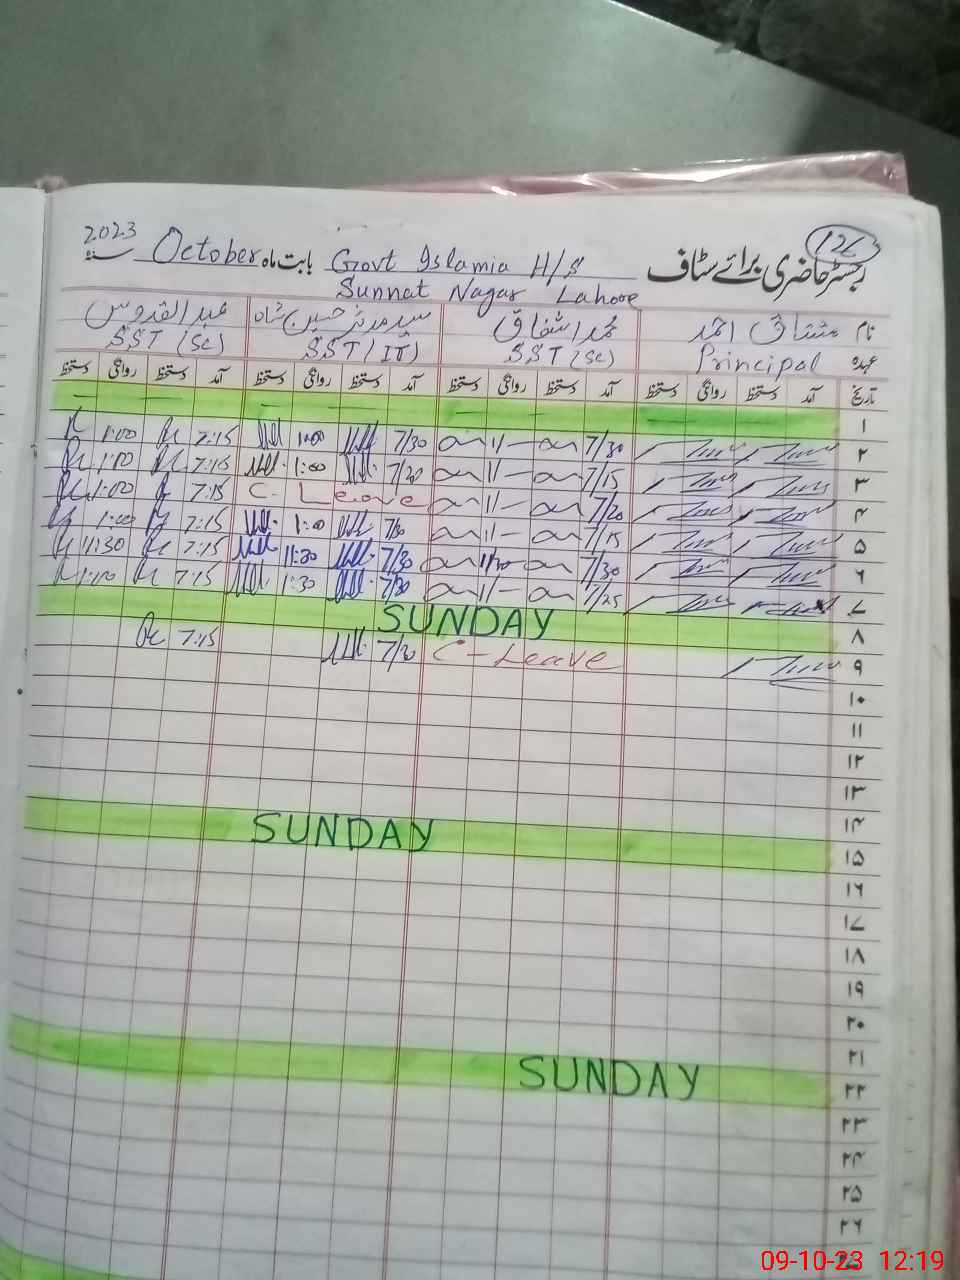 126
2023 سنہ October بابت ماہ Govt Islamia H/S رجسٹر حاضری برائے سٹاف
Sunnat Nagar Lahore
نام مشتاق احمد محمد اشفاق سید مدثر حسین شاہ عبدالقدوس
عہدہ Principal SST (Sc) SST (IT) SST (Sc)
تاریخ آمد دستخط روانگی دستخط آمد دستخط روانگی دستخط آمد دستخط روانگی دستخط آمد دستخط روانگی دستخط
۱
۲ 7/30 11 7/30 1:00 7:15 1:00
۳ 7/15 11 7/20 1:00 7:15 1:00
۴ 7/20 11 C- Leave 7:15 1:00
۵ 7/15 11 7/30 1:00 7:15 1:00
۶ 7/30 7/30 11:30 7:15 11:30
۷ 7/25 11 7/30 1:30 7:15
۸ SUNDAY
۹ C-Leave 7/30 7:15
۱۰
۱۱
۱۲
۱۳
۱۴
۱۵ SUNDAY
۱۶
۱۷
۱۸
۱۹
۲۰
۲۱
۲۲ SUNDAY
۲۳
۲۴
۲۵
۲۶
09-10-23 12:19